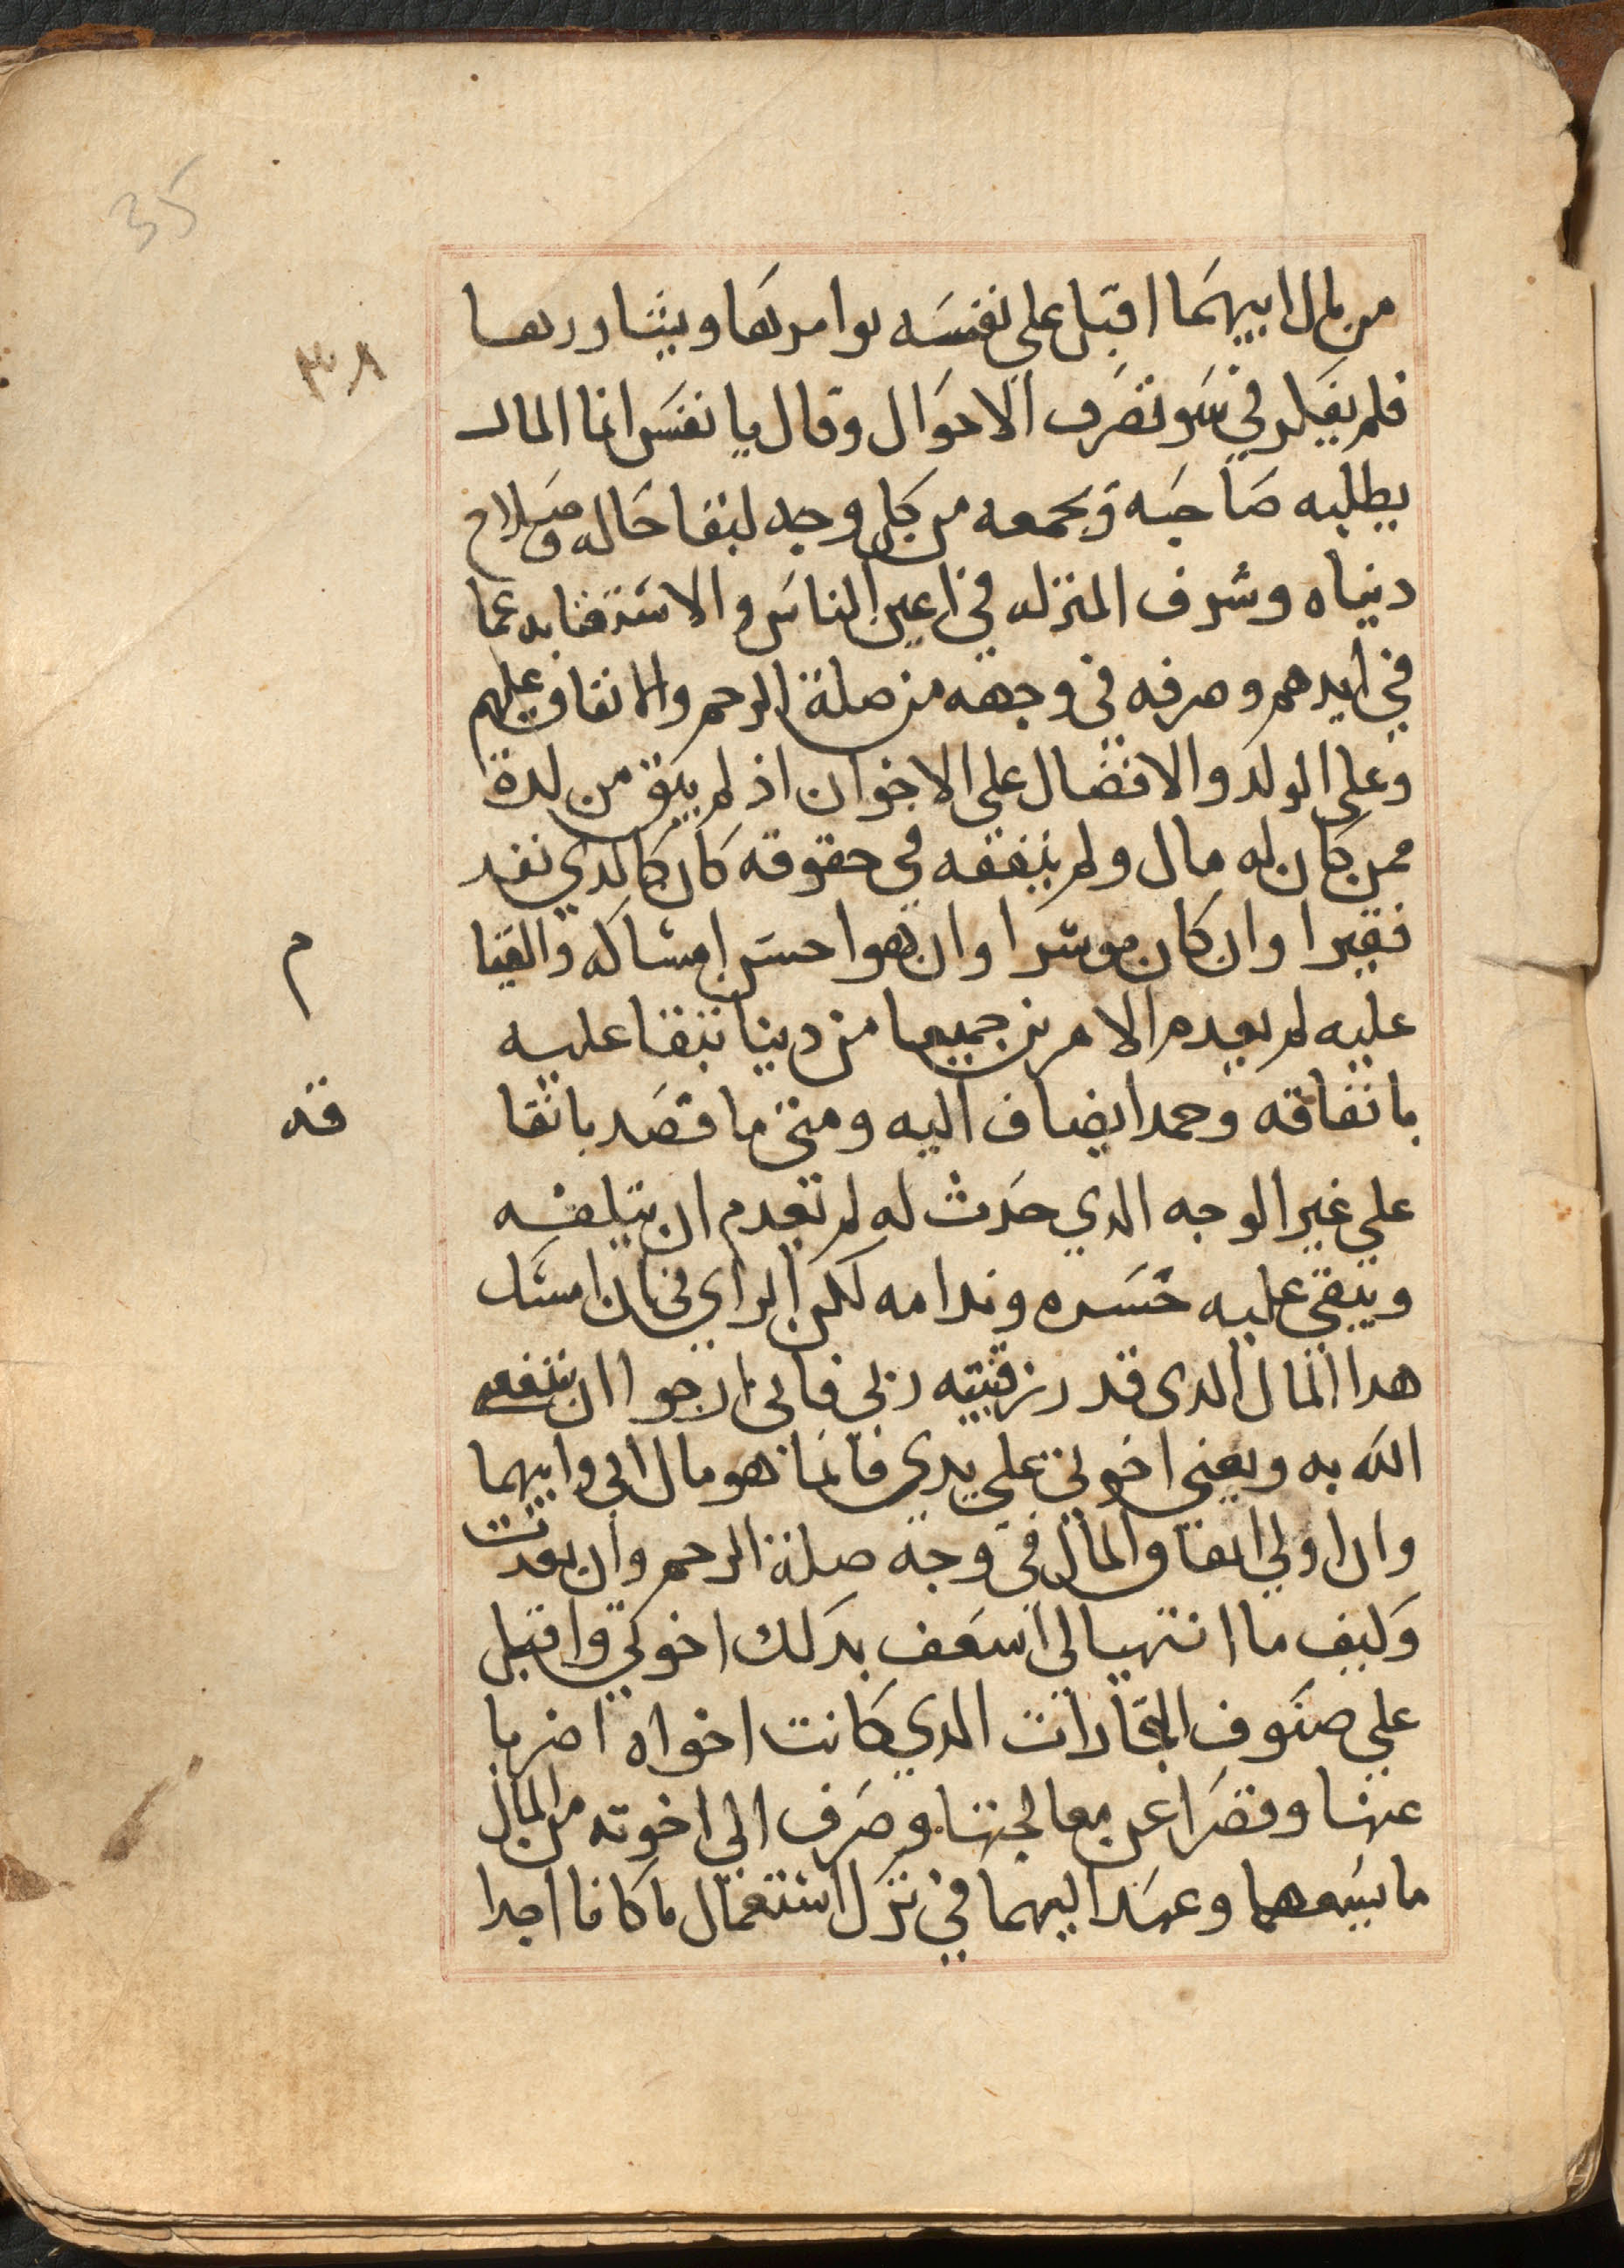 35
٣٨
من مال ابيهما اقبل على نفسه يوامرها ويشاورها
فلم يفكر في سو تصرف الاحوال وقال يا نفس انما المال
يطلبه صاحبه ويجمعه من كل وجه لبقا حاله وصلاح
دنياه وشرف المنزله في اعين الناس والاستغنا به عما
في ايدهم وصرفه في وجهه من صلة الرحم والانفاق عليهم
وعلى الولد والافضال على الاخوان اذ لم يبق من لدة
ممن كان له مال ولم ينفقه في حقوقه كان كالدي نفد
فقيرا وان كان موسرا وان هوا حسن امساكه والقيا
م
عليه لم يعدم الامرين جميعا من دينا تبقا عليه
بانفاقه وحمدا يضاف اليه ومتى ما قصد بانفا
قه
على غير الوجه الدي حدث له لم تعدم ان يتلفه
ويبقي عليه حسره وندامه لكن الراي في بان امسك
هدا المال الدى قد رزقنيه ربي فاني ارجوا ان ينفع
الله به ويغني اخوتي على يدي فانما هو مال ابي وابيهما
وان اولى انفاق المال في وجه صلة الرحم وان بعدت
وكيف ما انتهيا لي اسعف بدلك اخوتي واقبل
علي صنوف التجارات الدي كانت اخواه اضربا
عنها وقصرا عن معالجتها وصرف الى اخوته من المال
ما يسعهما وعهد اليهما في ترك استعمال ما كانا اجدا